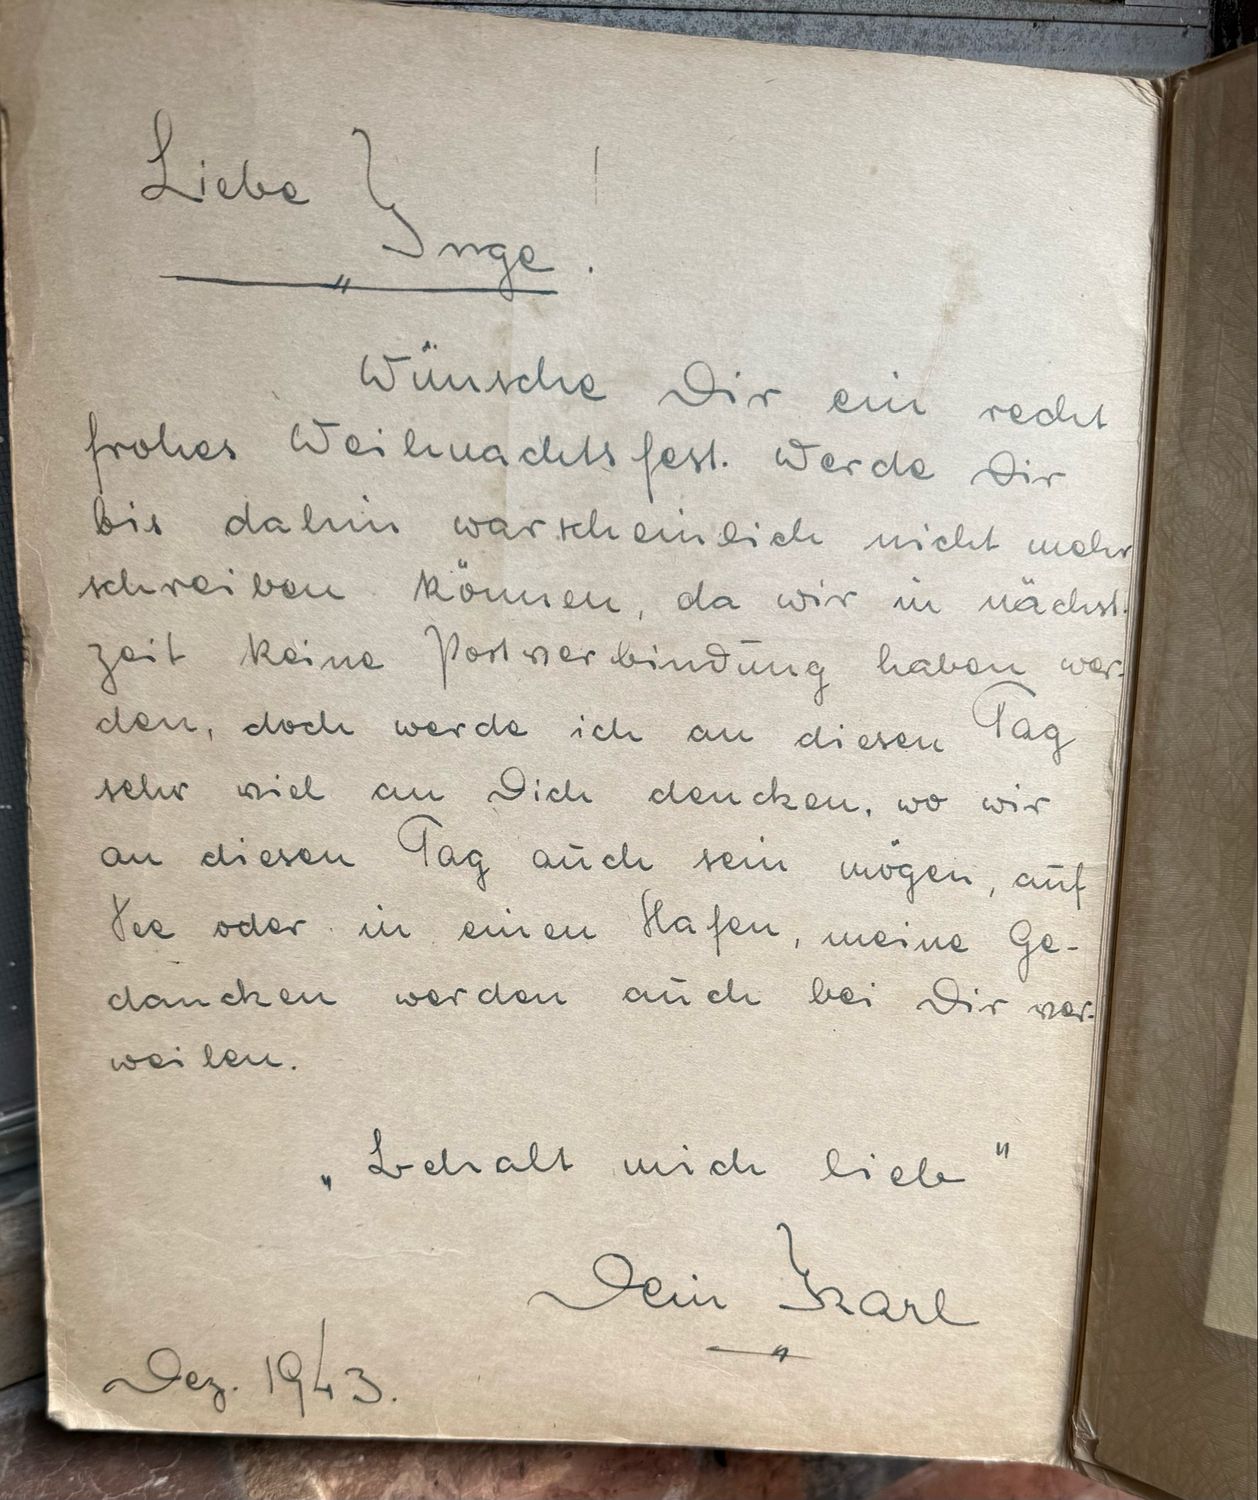 Liebe Inge!
Wünsche Dir ein recht
frohes Weihnachtsfest. Werde Dir
bis dahin warscheinlich nicht mehr
schreiben können, da wir in nächst-
zeit keine Postverbindung haben wer-
den, doch werde ich an diesen Tag
sehr viel an Dich dencken, wo wir
an diesen Tag auch sein mögen, auf
See oder in einen Hafen, meine Ge-
dancken werden auch bei Dir ver-
weilen.
„Behalt mich lieb"
Dein Karl
Dez. 1943.